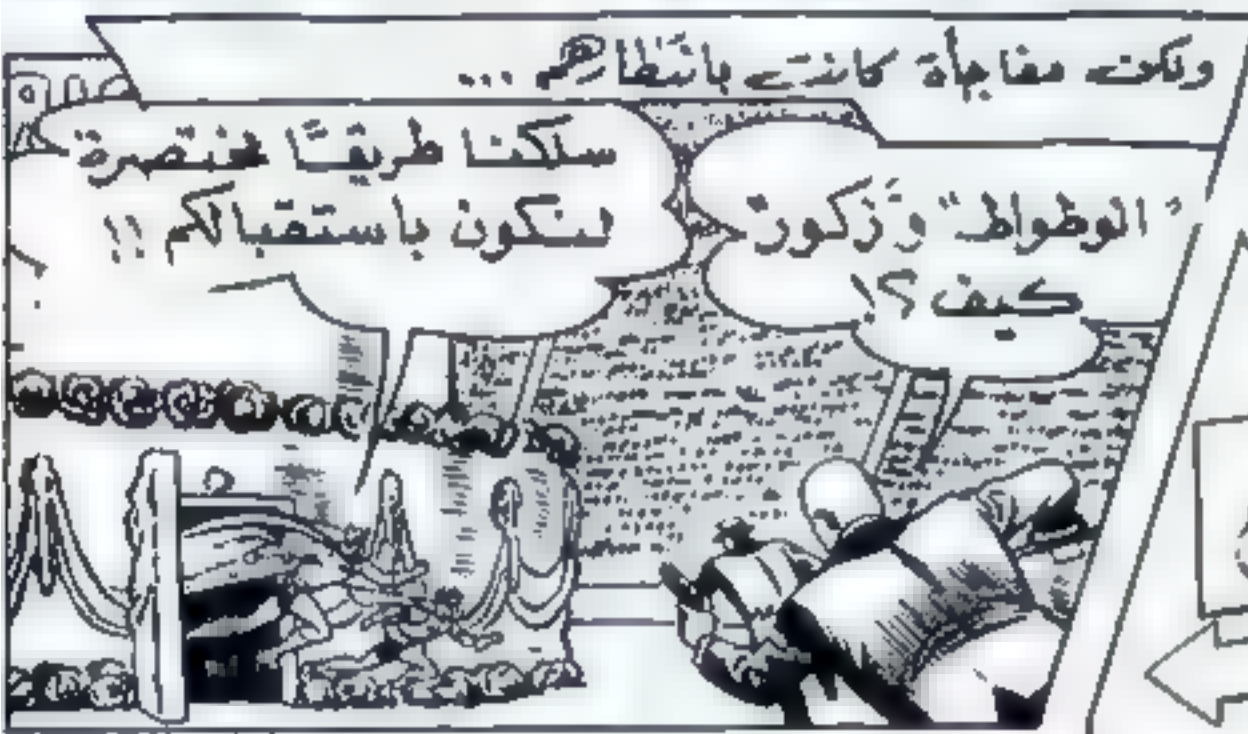 ولكن مفاجأة كانت بانتظارهم ...
"الوطواط" وَزكورْ
كيف؟!
سلكنا طريقًا مختصرة
لنكون باستقبالكم !!